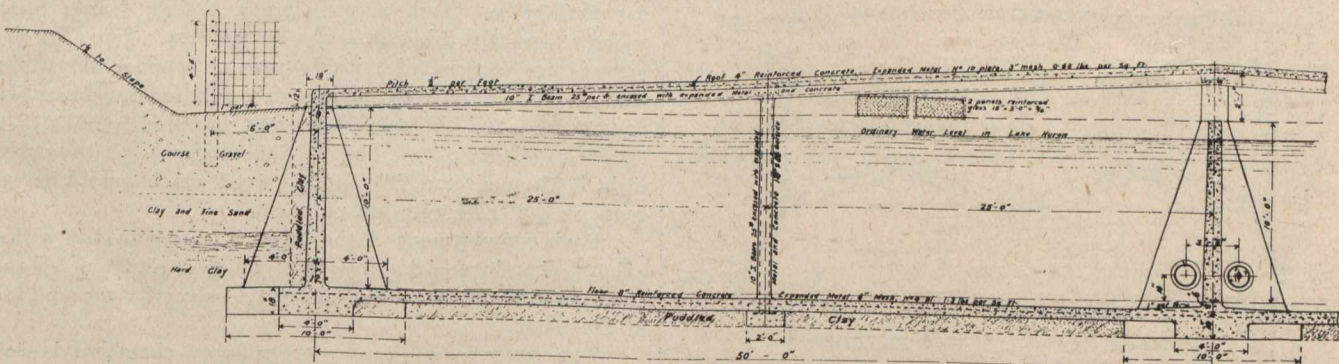 1½ to 1 Slope
4'-0"
18"
Pitch ½" per Foot
Roof 4" Reinforced Concrete. Expanded Metal No 10 plate, 3" mesh, 0.68 lbs. per Sq. Ft.
10" I Beam 25# per ft. encased with expanded Metal and Concrete
2 panels reinforced
glass
Ordinary Water Level in Lake Huron
1" per ft.
6'-0"
Course Gravel
Clay and Fine Sand
Hard Clay
Puddled Clay
10'-0"
25'-0"
25'-0"
10'-0"
10" I Beam 25# encased with expanded
Metal and Concrete
4'-0"
4'-0"
Floor 8" Reinforced Concrete Expanded Metal 6" Mesh, No 4 Pl.
lbs per Sq. Ft.
18"
Puddled Clay
4'-0"
10'-0"
2'-0"
4'-0"
10'-0"
50'-0"